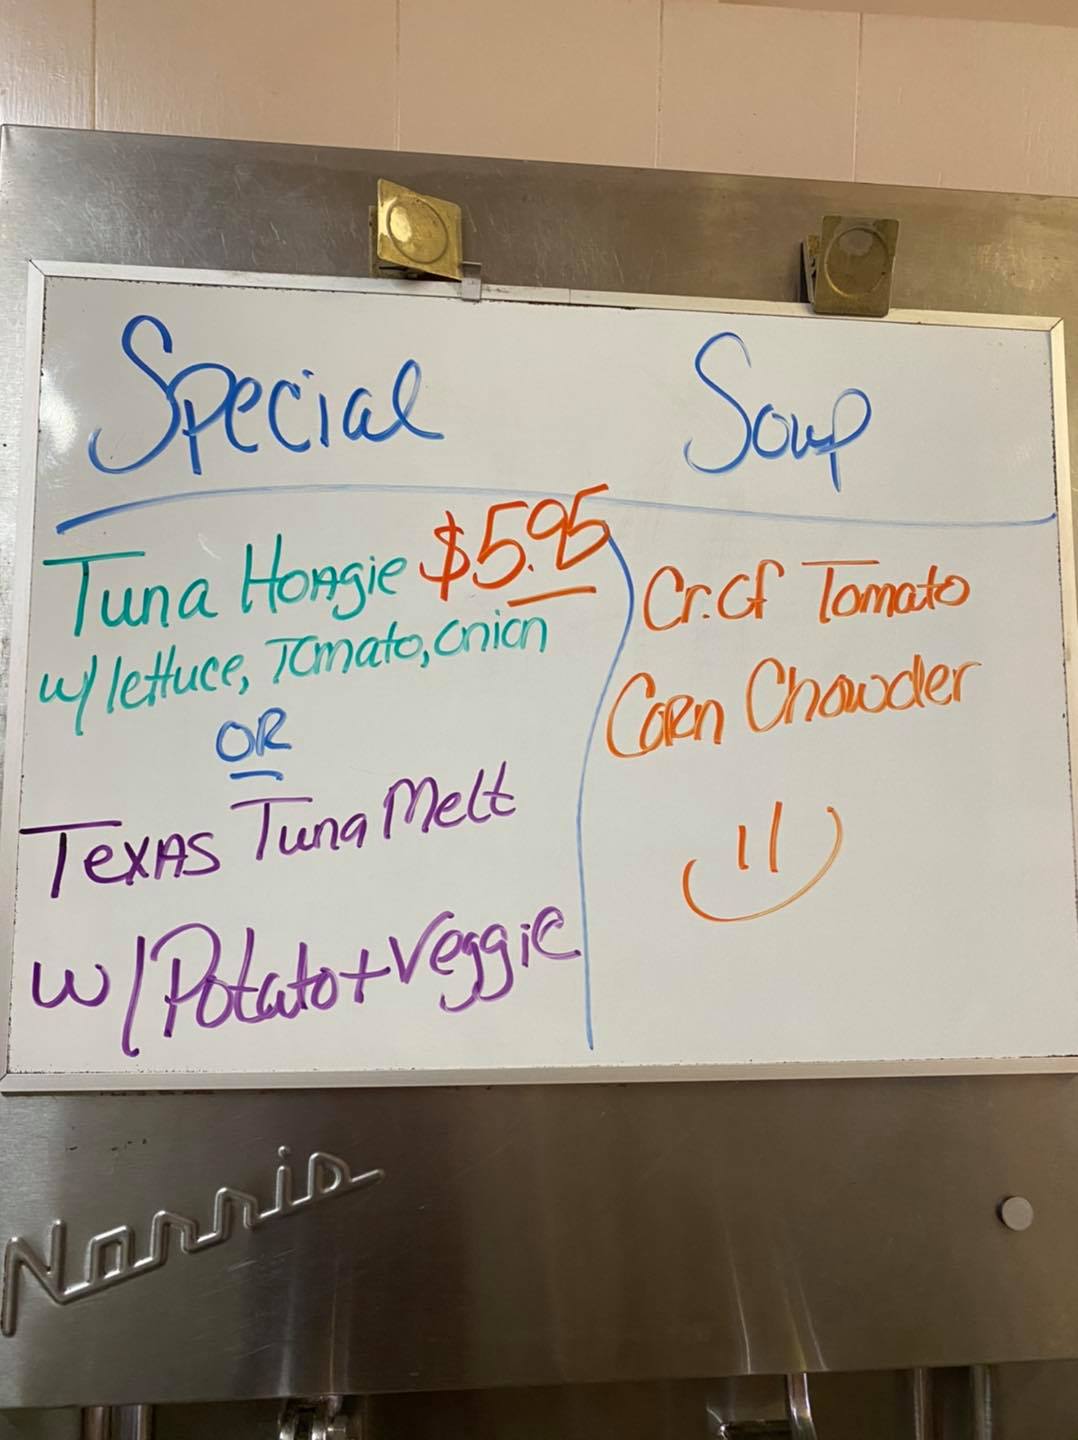 Special
Tuna Hoagie $5.95
w/ lettuce, Tomato, onion
OR
Texas Tuna Melt
w/ Potato + Veggie
Soup
Cr. of Tomato
Corn Chowder
Norris